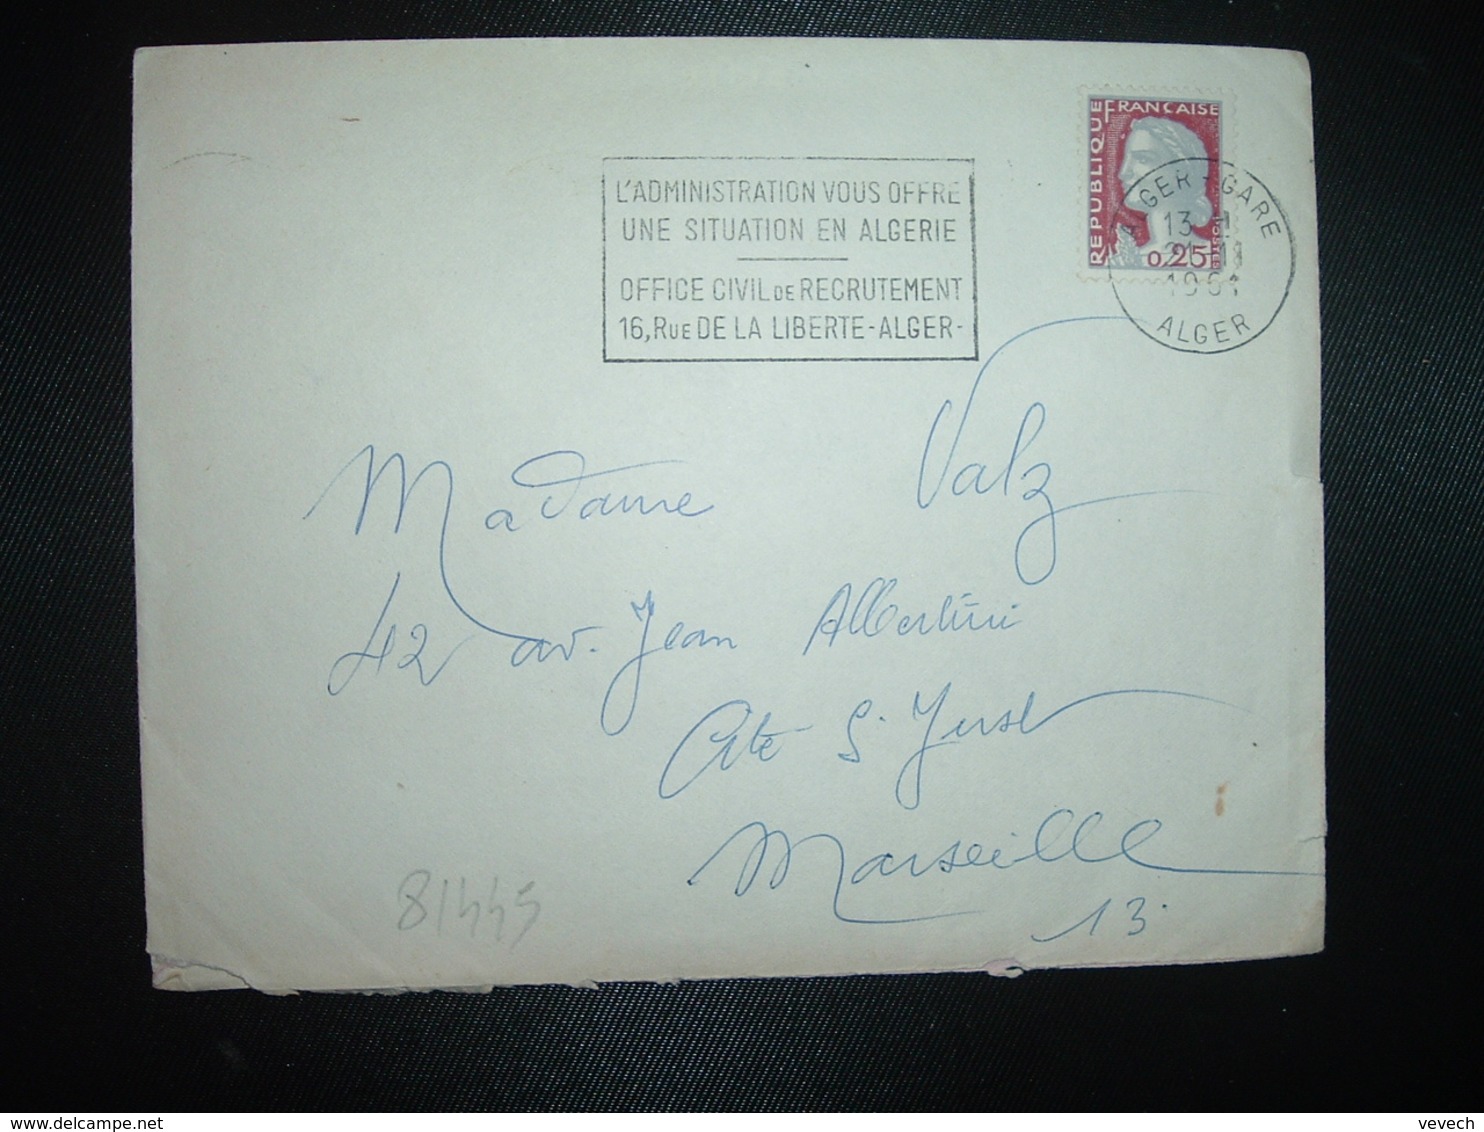 REPUBLIQUE FRANÇAISE
0,25
POSTES
L'ADMINISTRATION VOUS OFFRE
UNE SITUATION EN ALGERIE
OFFICE CIVIL DE RECRUTEMENT
16, RUE DE LA LIBERTE - ALGER -
ALGER - GARE
13 H
1961
ALGER
Madame Valz
42 av. Jean Albertini
Cité S.
Marseille
13.
81445
delcampe.net
vevech